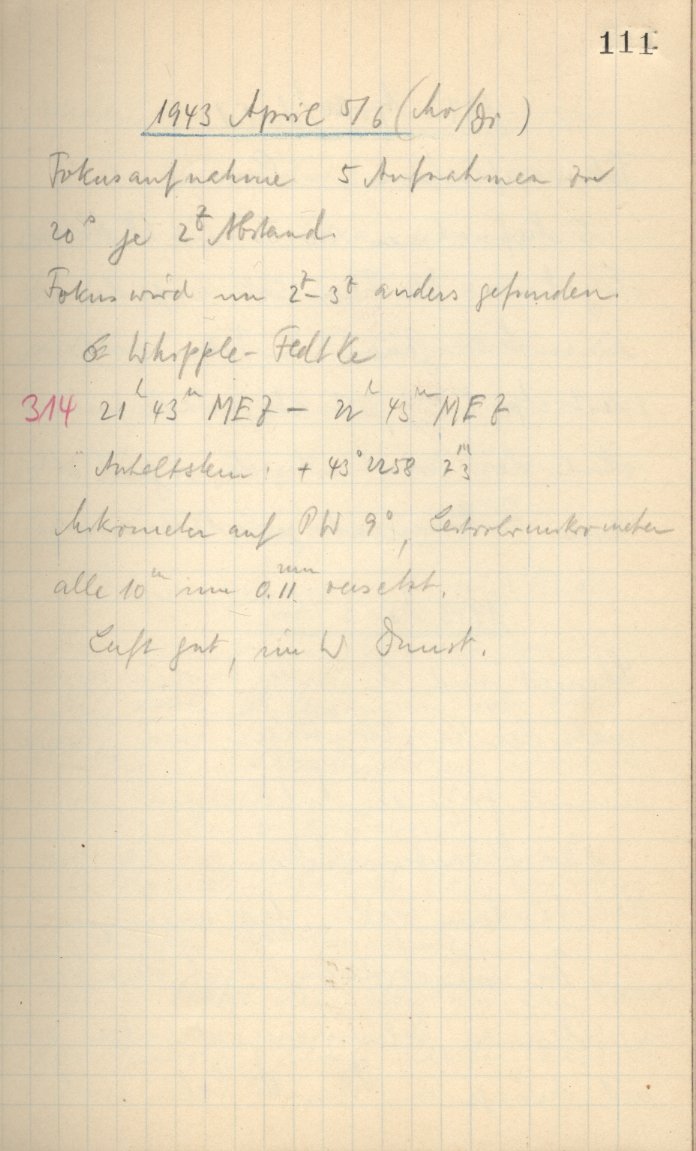 111
1943 April 5/6 (Mo/Di)
Fokusaufnahme 5 Aufnahmen zu
20s je 2z Abstand.
Fokus wird um 2z–3z anders gefunden.
Whipple-Fedtke
314 21h 43m MEZ – 22h 43m MEZ
Anhaltstern +43° 2258
Mikrometer auf PW 9°,
alle 10m um 0.11mm versetzt.
Luft gut, im W Dunst.